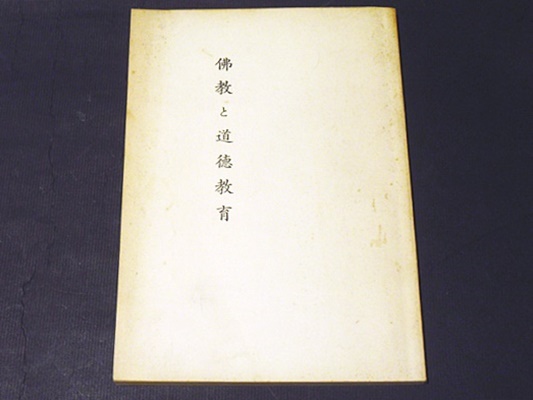 佛教と道徳教育